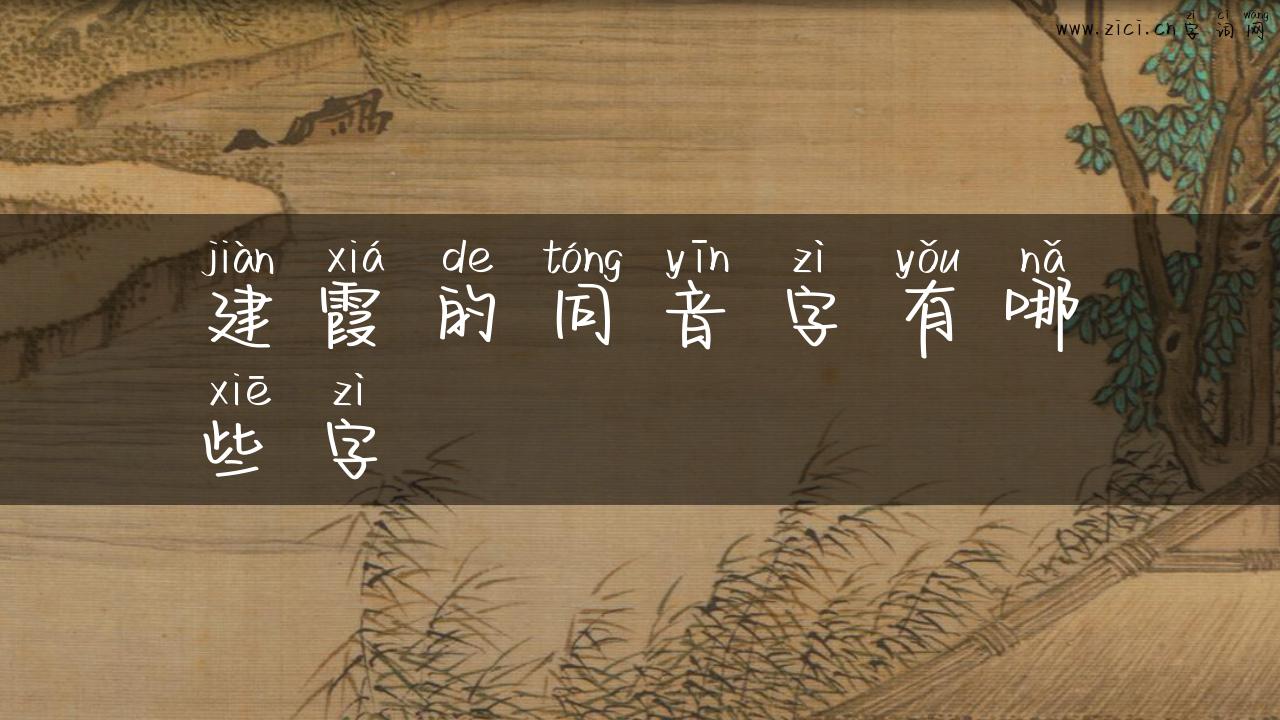 zì cí wǎng
www.zici.cn字词网
jiàn xiá de tóng yīn zì yǒu nǎ
建霞的同音字有哪
xiē zì
些字